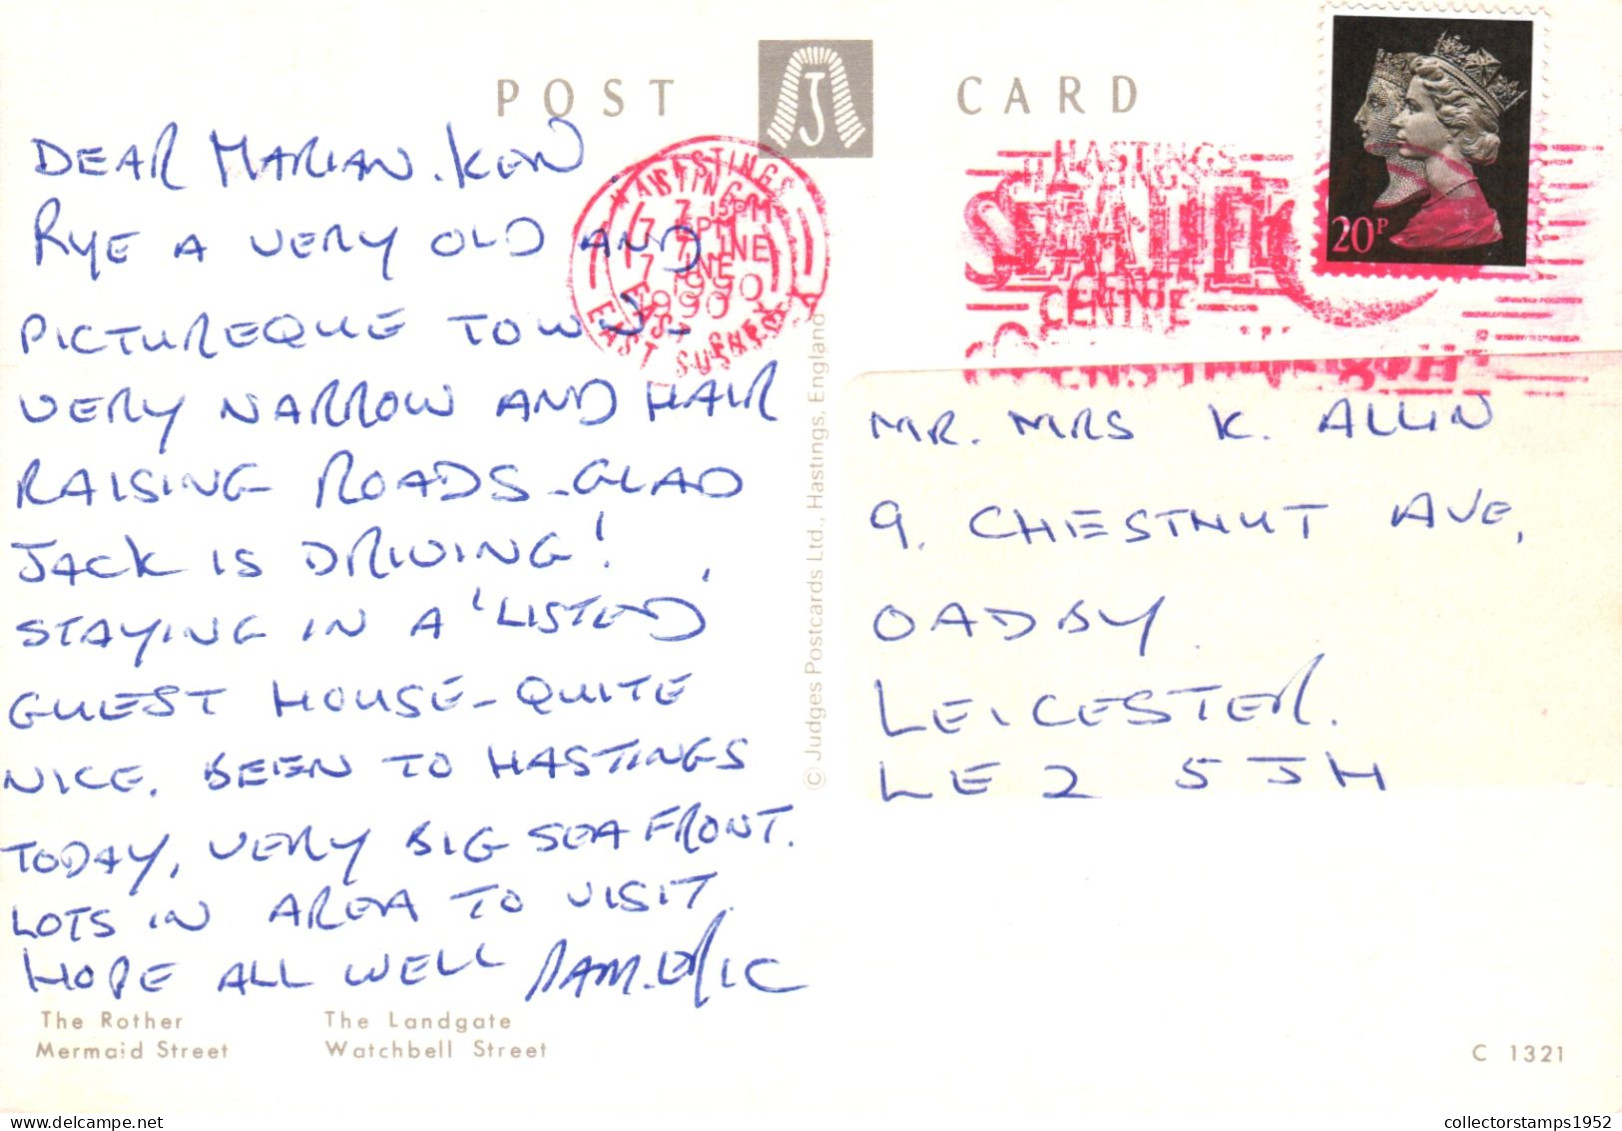 POST CARD
J
DEAR MARIAN. KEN.
RYE A VERY OLD AND
PICTUREQUE TOWN -
VERY NARROW AND HAIR
RAISING ROADS - GLAD
JACK IS DRIVING!
STAYING IN A 'LISTED'
GUEST HOUSE - QUITE
NICE. BEEN TO HASTINGS
TODAY, VERY BIG SEA FRONT.
LOTS IN AREA TO VISIT.
HOPE ALL WELL PAM. ERIC
The Rother
Mermaid Street
The Landgate
Watchbell Street
© Judges Postcards Ltd., Hastings, England
HASTINGS
7 JNE
1990
EAST SUSSEX
HASTINGS
SEA LIFE
CENTRE
20P
MR. MRS K. ALLIN
9. CHESTNUT AVE,
OADBY.
LEICESTER.
LE2 5JH
C 1321
collectorstamps1952